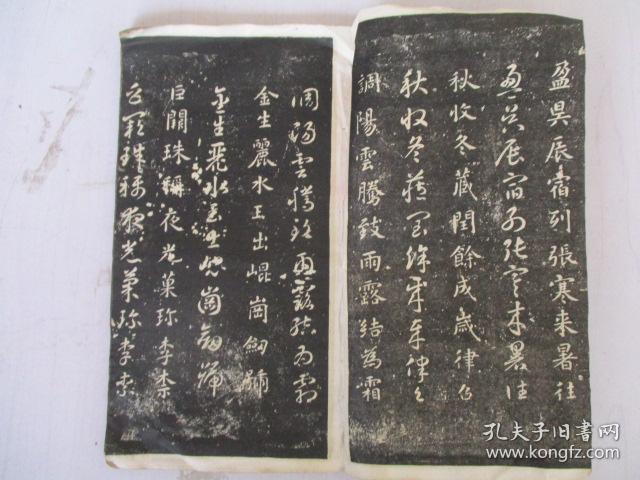 盈昃辰宿列張寒来暑往
盈昃辰宿列張寒来暑往
秋收冬藏閏餘成歲律呂
秋收冬藏閏餘成歲律呂
調陽雲騰致雨露結為霜
調陽雲騰致雨露結為霜
金生麗水玉出崐崗劒號
金生麗水玉出崐崗劒號
巨闕珠稱夜光菓珍李柰
巨闕珠稱夜光菓珍李柰
孔夫子旧书网
www.kongfz.com